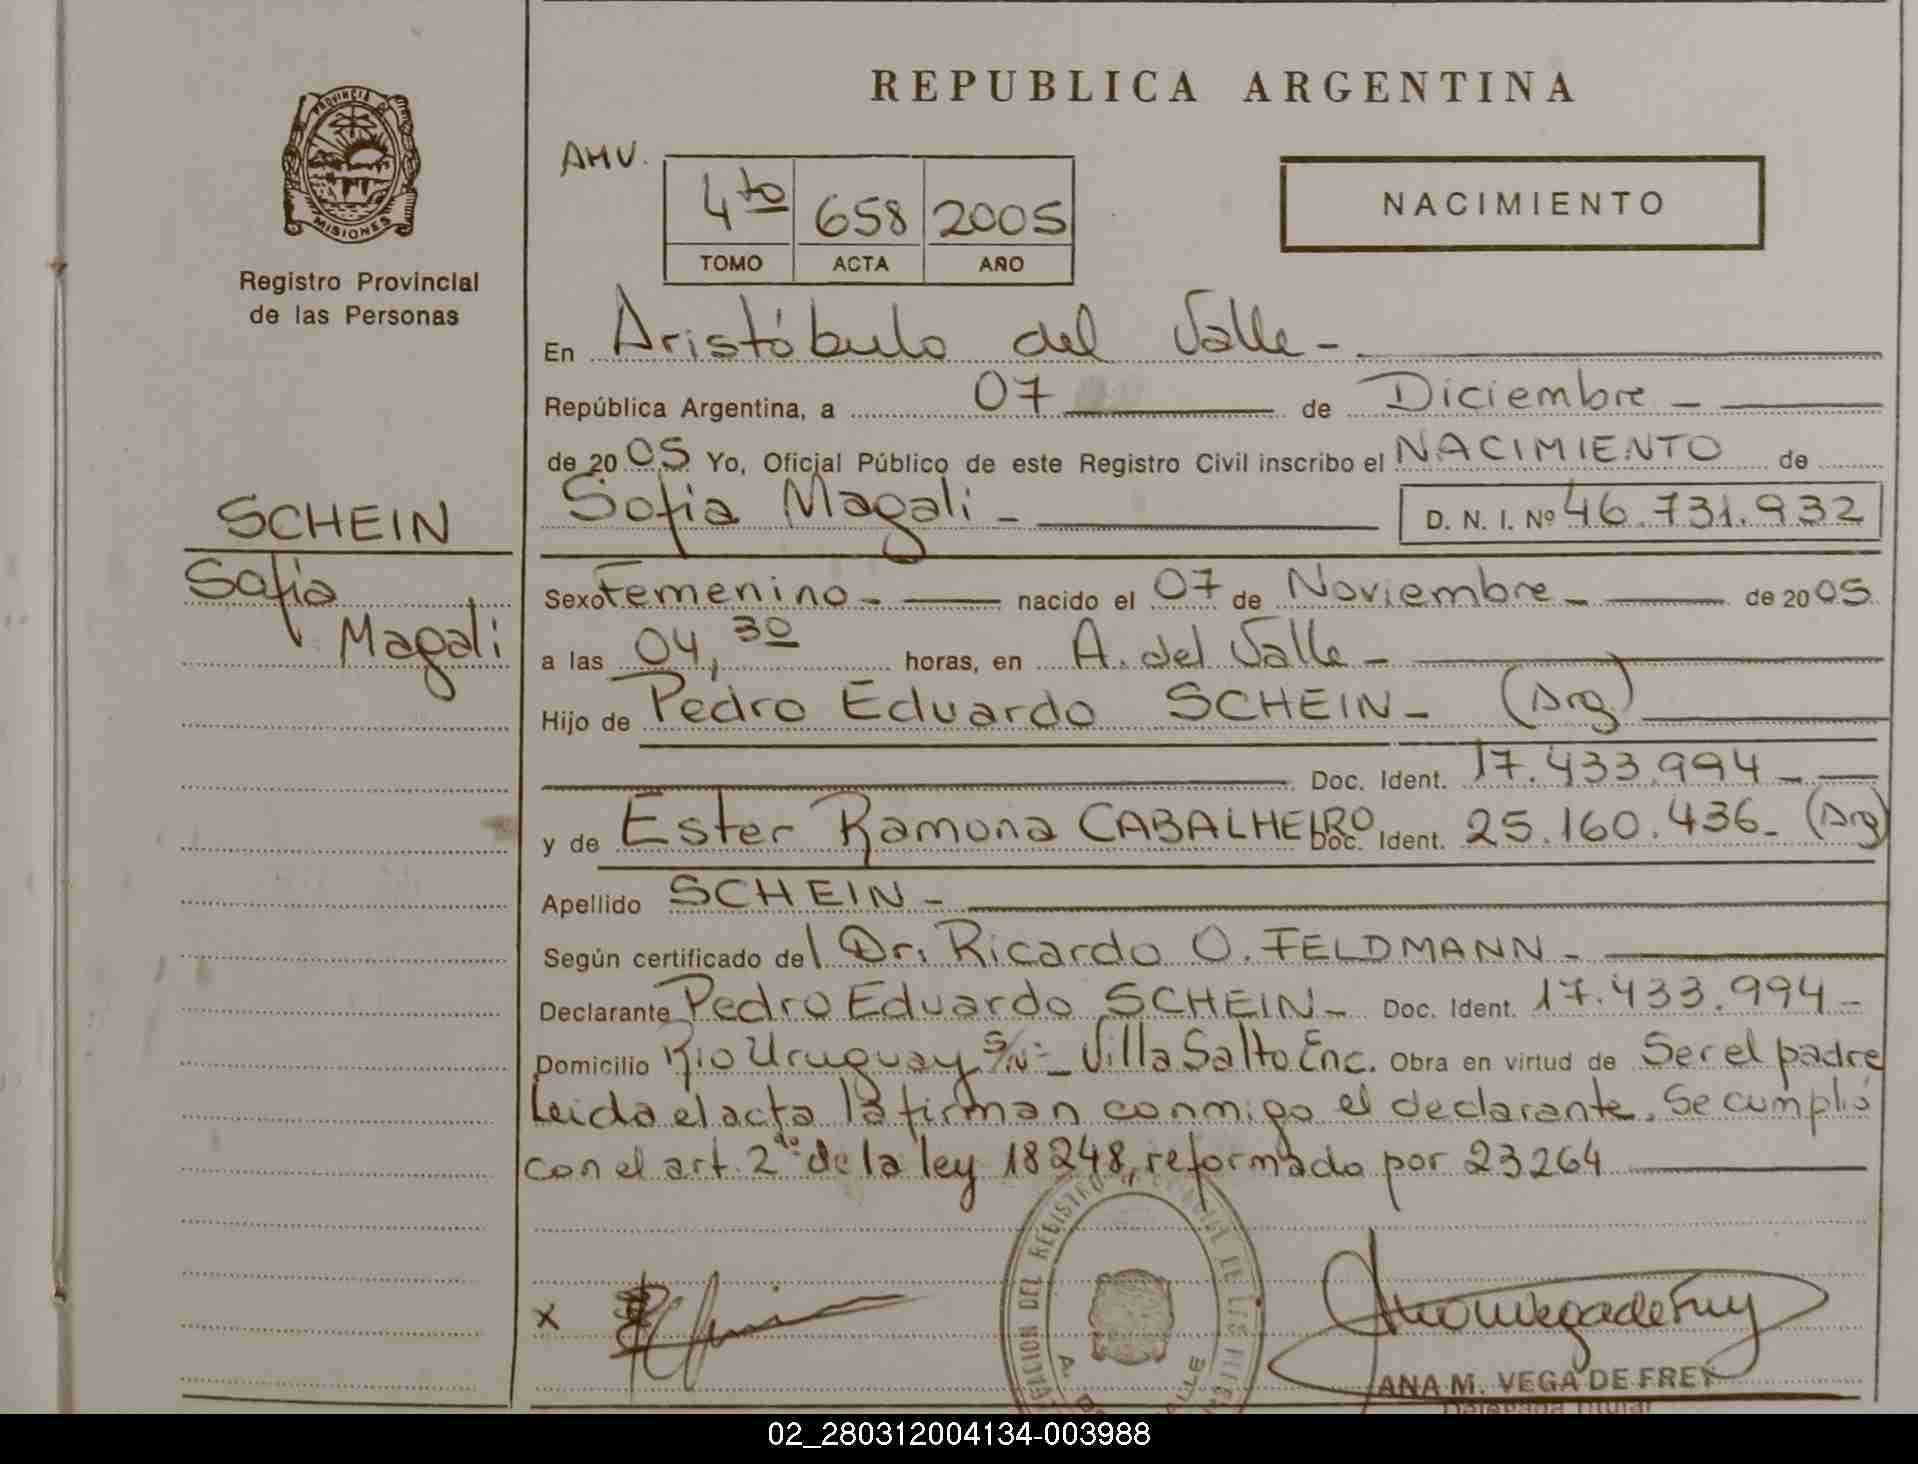 REPUBLICA ARGENTINA
PROVINCIA DE
MISIONES
Registro Provincial
de las Personas
AMV.
4to 658 2005
TOMO ACTA AÑO
NACIMIENTO
En Aristóbulo del Valle -
República Argentina, a 07 de Diciembre -
de 2005 Yo, Oficial Público de este Registro Civil inscribo el NACIMIENTO de
Sofia Magali - D. N. I. Nº 46.731.932
SCHEIN
Sofia
Magali
Sexo Femenino - nacido el 07 de Noviembre - de 2005
a las 04,30 horas, en A. del Valle -
Hijo de Pedro Eduardo SCHEIN - (Arg)
Doc. Ident. 17.433.994 -
y de Ester Ramona CABALHEIRO Doc. Ident. 25.160.436 - (Arg)
Apellido SCHEIN -
Según certificado del Dr. Ricardo O. FELDMANN -
Declarante Pedro Eduardo SCHEIN - Doc. Ident. 17.433.994 -
Domicilio Rio Uruguay S/Nº - Villa Salto Enc. Obra en virtud de Ser el padre
Leida el acta la firman conmigo el declarante. Se cumplió
con el art. 2do de la ley 18248, reformado por 23264
X
ANA M. VEGA DE FREY
Delegada Titular
02_280312004134-003988